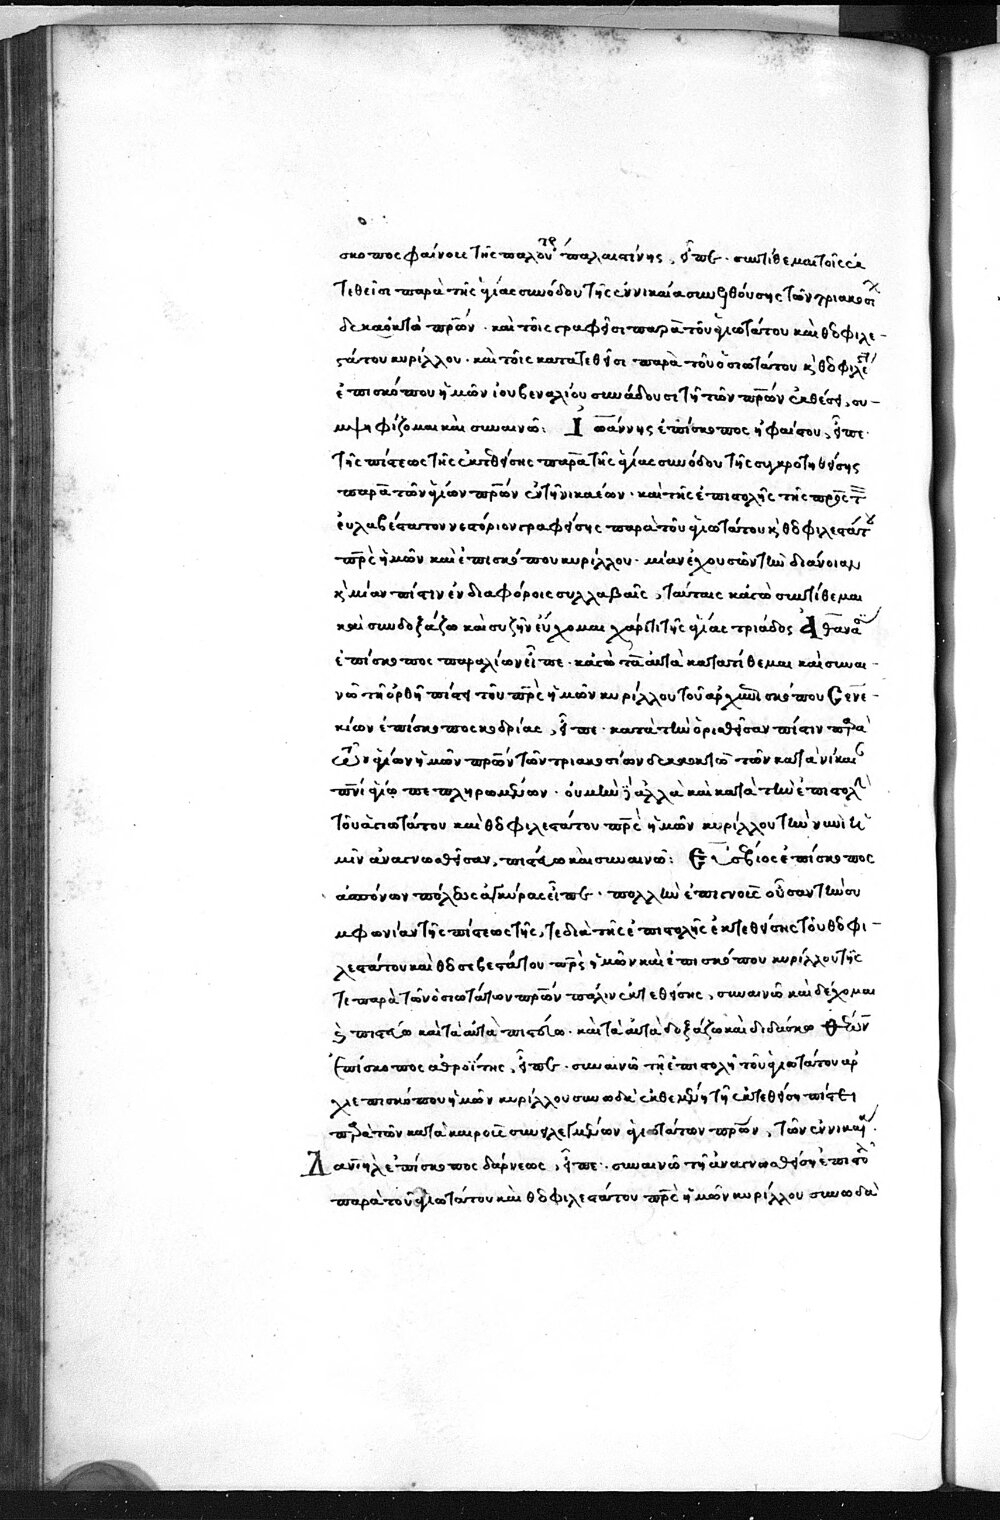 σκοπος φαίνους τῆς παλου παλαιστίνης, εἶπε· συντίθεμαι τοῖς ἐκ
τεθεῖσι παρὰ τῆς ἁγίας συνόδου τῆς ἐν νικαία συνελθούσης τῶν τριακοσί
δεκαοκτὼ πρων· καὶ τοῖς γραφεῖσι παρὰ τοῦ ἁγιωτάτου καὶ θεοφιλε-
στάτου κυρίλλου· καὶ τοῖς κατατεθεῖσι παρὰ τοῦ ὁσιωτάτου κ θεοφιλε
ἐπισκόπου ἡμῶν ἰουβεναλίου συνάδουσι τῆ τῶν πρων ἐκθέσει, συ-
μψηφίζομαι καὶ συναινῶ: Ἰωάννης ἐπίσκοπος ἡφαίστου, εἶπε·
τῆς πίστεως τῆς ἐκτεθείσης παρὰ τῆς ἁγίας συνόδου τῆς συγκροτηθείσης
παρὰ τῶν ἁγίων πρων ἐν τῆ νικαέων· καὶ τῆς ἐπιστολῆς τῆς πρὸς τ
εὐλαβέστατον νεστόριον γραφείσης παρὰ τοῦ ἁγιωτάτου κ θεοφιλεστάτ
πρς ἡμῶν καὶ ἐπισκόπου κυρίλλου· μίαν ἐχουσῶν τὴν διάνοιαν
κ μίαν πίστιν ἐν διαφόροις συλλαβαῖς, ταύταις κἀγὼ συντίθεμαι
καὶ συνδοξάζω καὶ συζῆν εὔχομαι χάριτι τῆς ἁγίας τριάδος Ἀθανά
ἐπίσκοπος παραλίων εἶπε· κἀγὼ τὰ αὐτὰ κατατίθεμαι καὶ συναι-
νῶ τῆ ὀρθῆ πίστει τοῦ πρς ἡμῶν κυρίλλου τοῦ ἀρχιεπισκόπου Σενε-
κίων ἐπίσκοπος κοδρίας, εἶπε· κατὰ τὴν ὁρισθεῖσαν πίστιν παρὰ
τῶν ἁγίων ἡμῶν πρων τῶν τριακοσίων δεκαοκτὼ τῶν κατὰ νίκαι
πνι ἁγίω πεπληρωμένων· οὐ μὴν ἀλλὰ καὶ κατὰ τὴν ἐπιστολ
τοῦ ἁγιωτάτου καὶ θεοφιλεστάτου πρς ἡμῶν κυρίλλου τὴν νυνὶ ἡ
μῖν ἀναγνωσθεῖσαν, πιστεύω καὶ συναινῶ: Εὐσέβιος ἐπίσκοπος
ἀσπόνων πόλεως ἀγκύρας εἶπε· πολλὴν ἐπιγνοὺς οὖσαν τὴν συ
μφωνίαν τῆς πίστεως τῆς, τε διὰ τῆς ἐπιστολῆς ἐκτεθείσης τοῦ θεοφι-
λεστάτου καὶ θεοσεβεστάτου πρς ἡμῶν καὶ ἐπισκόπου κυρίλλου τῆς
τε παρὰ τῶν ὁσιωτάτων πρων πάλιν ἐκτεθείσης, συναινῶ καὶ δέχομαι
κ πιστεύω κατὰ τὰ αὐτὰ πιστεύω· κατὰ τὰ αὐτὰ δοξάζω καὶ διδάσκω Θέων
Ἐπίσκοπος σεθροΐτης, εἶπε· συναινῶ τῆ ἐπιστολῆ τοῦ ἁγιωτάτου ἀρ
χιεπισκόπου ἡμῶν κυρίλλου συνωδὰ ἐκθεμένη τῆ ἐκτεθείση πίστει
παρὰ τῶν κατὰ καιροὺς συνειλεγμένων ἁγιωτάτων πρων, τῶν ἐν νικαί.
Δανιὴλ ἐπίσκοπος δάρνεως, εἶπε· συναινῶ τῆ ἀναγνωσθείση ἐπιστο
παρὰ τοῦ ἁγιωτάτου καὶ θεοφιλεστάτου πρς ἡμῶν κυρίλλου συνωδὰ